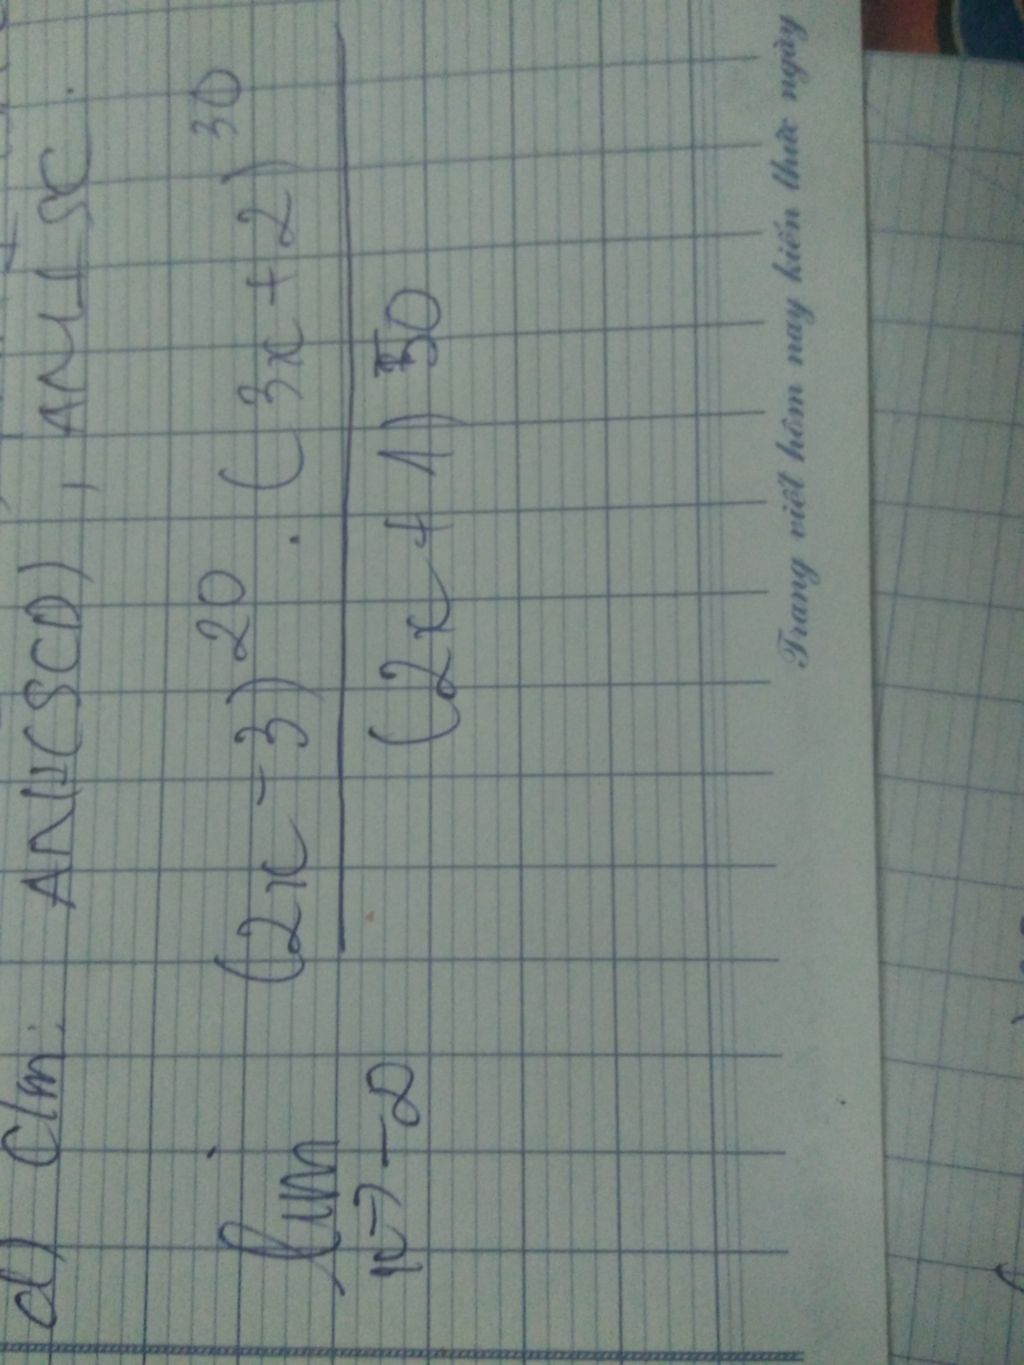 d) C/m: AN⊥(SCD), AN⊥SC.
lim (2x-3)^20 . (3x+2)^30
x→-∞ (2x+1)^50
Trang viết hôm nay kiến thức ngày